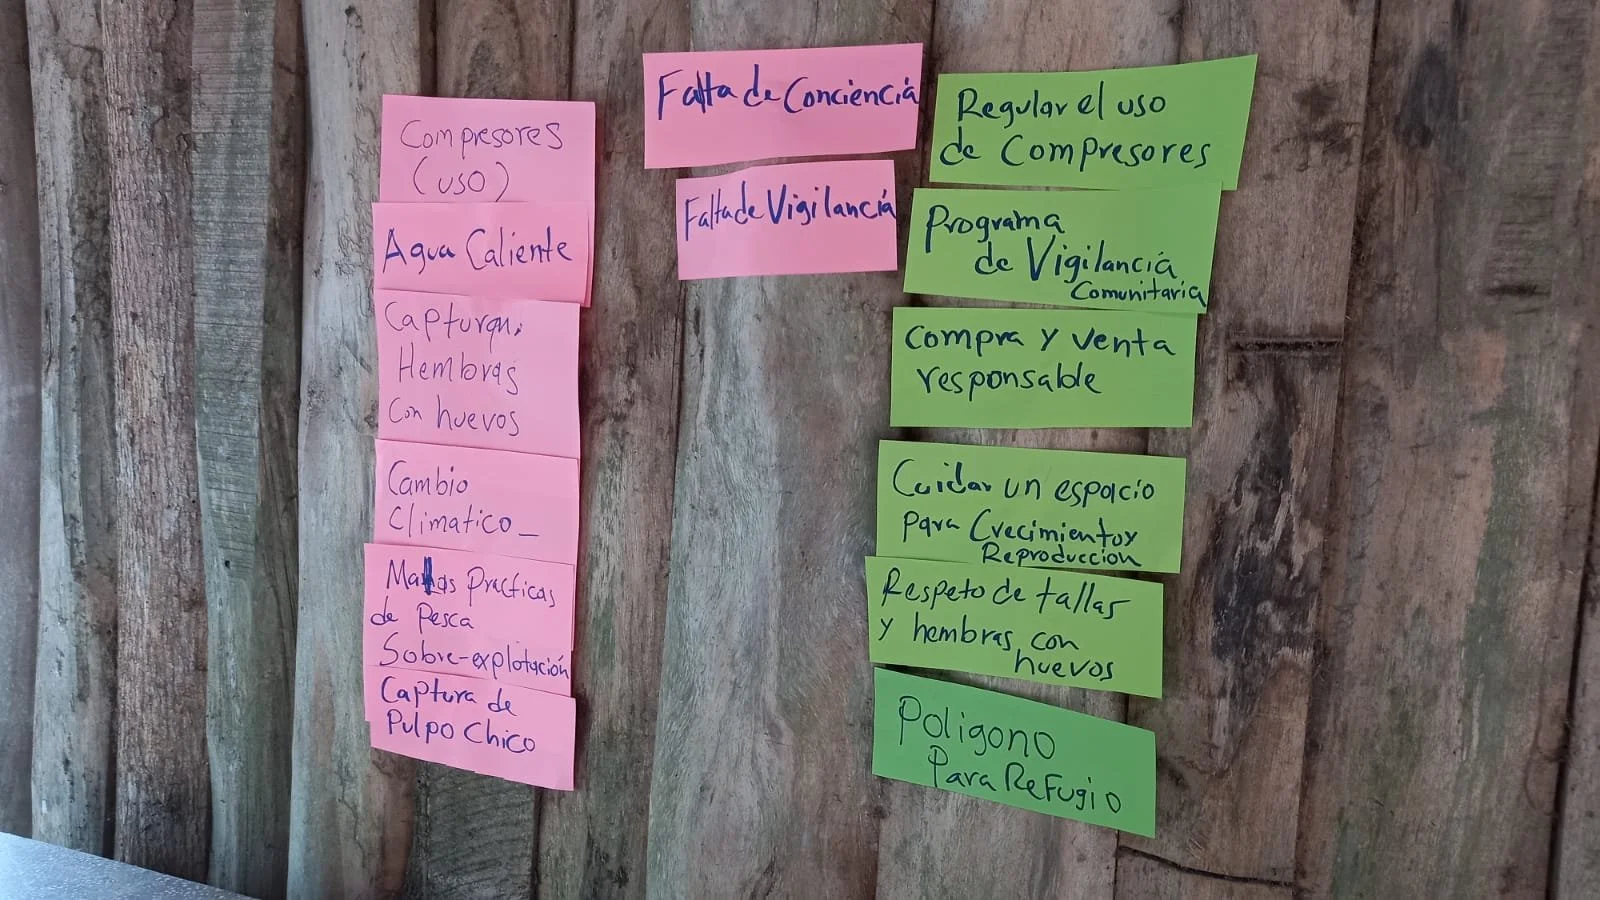 Compresores
(uso)
Agua Caliente
Capturan
Hembras
Con huevos
Cambio
Climatico_
Malas Practicas
de Pesca
Sobre-explotación
Captura de
Pulpo Chico
Falta de Conciencia
Falta de Vigilancia
Regular el uso
de Compresores
Programa
de Vigilancia
Comunitaria
Compra y venta
responsable
Cuidar un espacio
para Crecimiento y
Reproduccion
Respeto de tallas
y hembras con
huevos
Poligono
Para Refugio